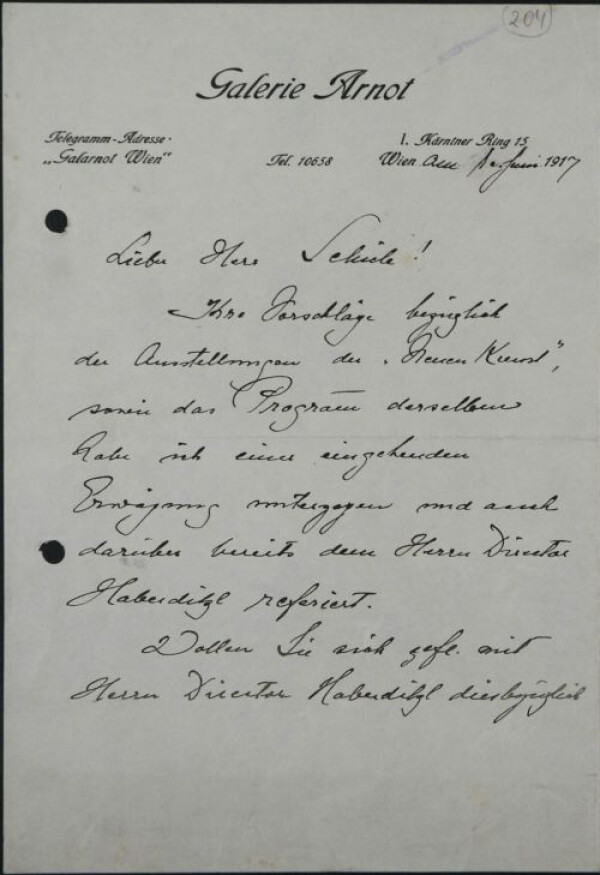 204
Galerie Arnot
Telegramm-Adresse-
„Galarnot Wien“
Tel. 10658
I. Kärntner Ring 15
Wien am Juni 1917
Lieber Herr Schiele!
Ihre Vorschläge bezüglich
der Ausstellungen der „Neuen Kunst“,
sowie das Program̄ derselben
habe ich einer eingehenden
Erwägung unterzogen und auch
darüber bereits dem Herrn Director
Haberditzl referiert.
Wollen Sie sich gefl. mit
Herrn Director Haberditzl diesbezüglich